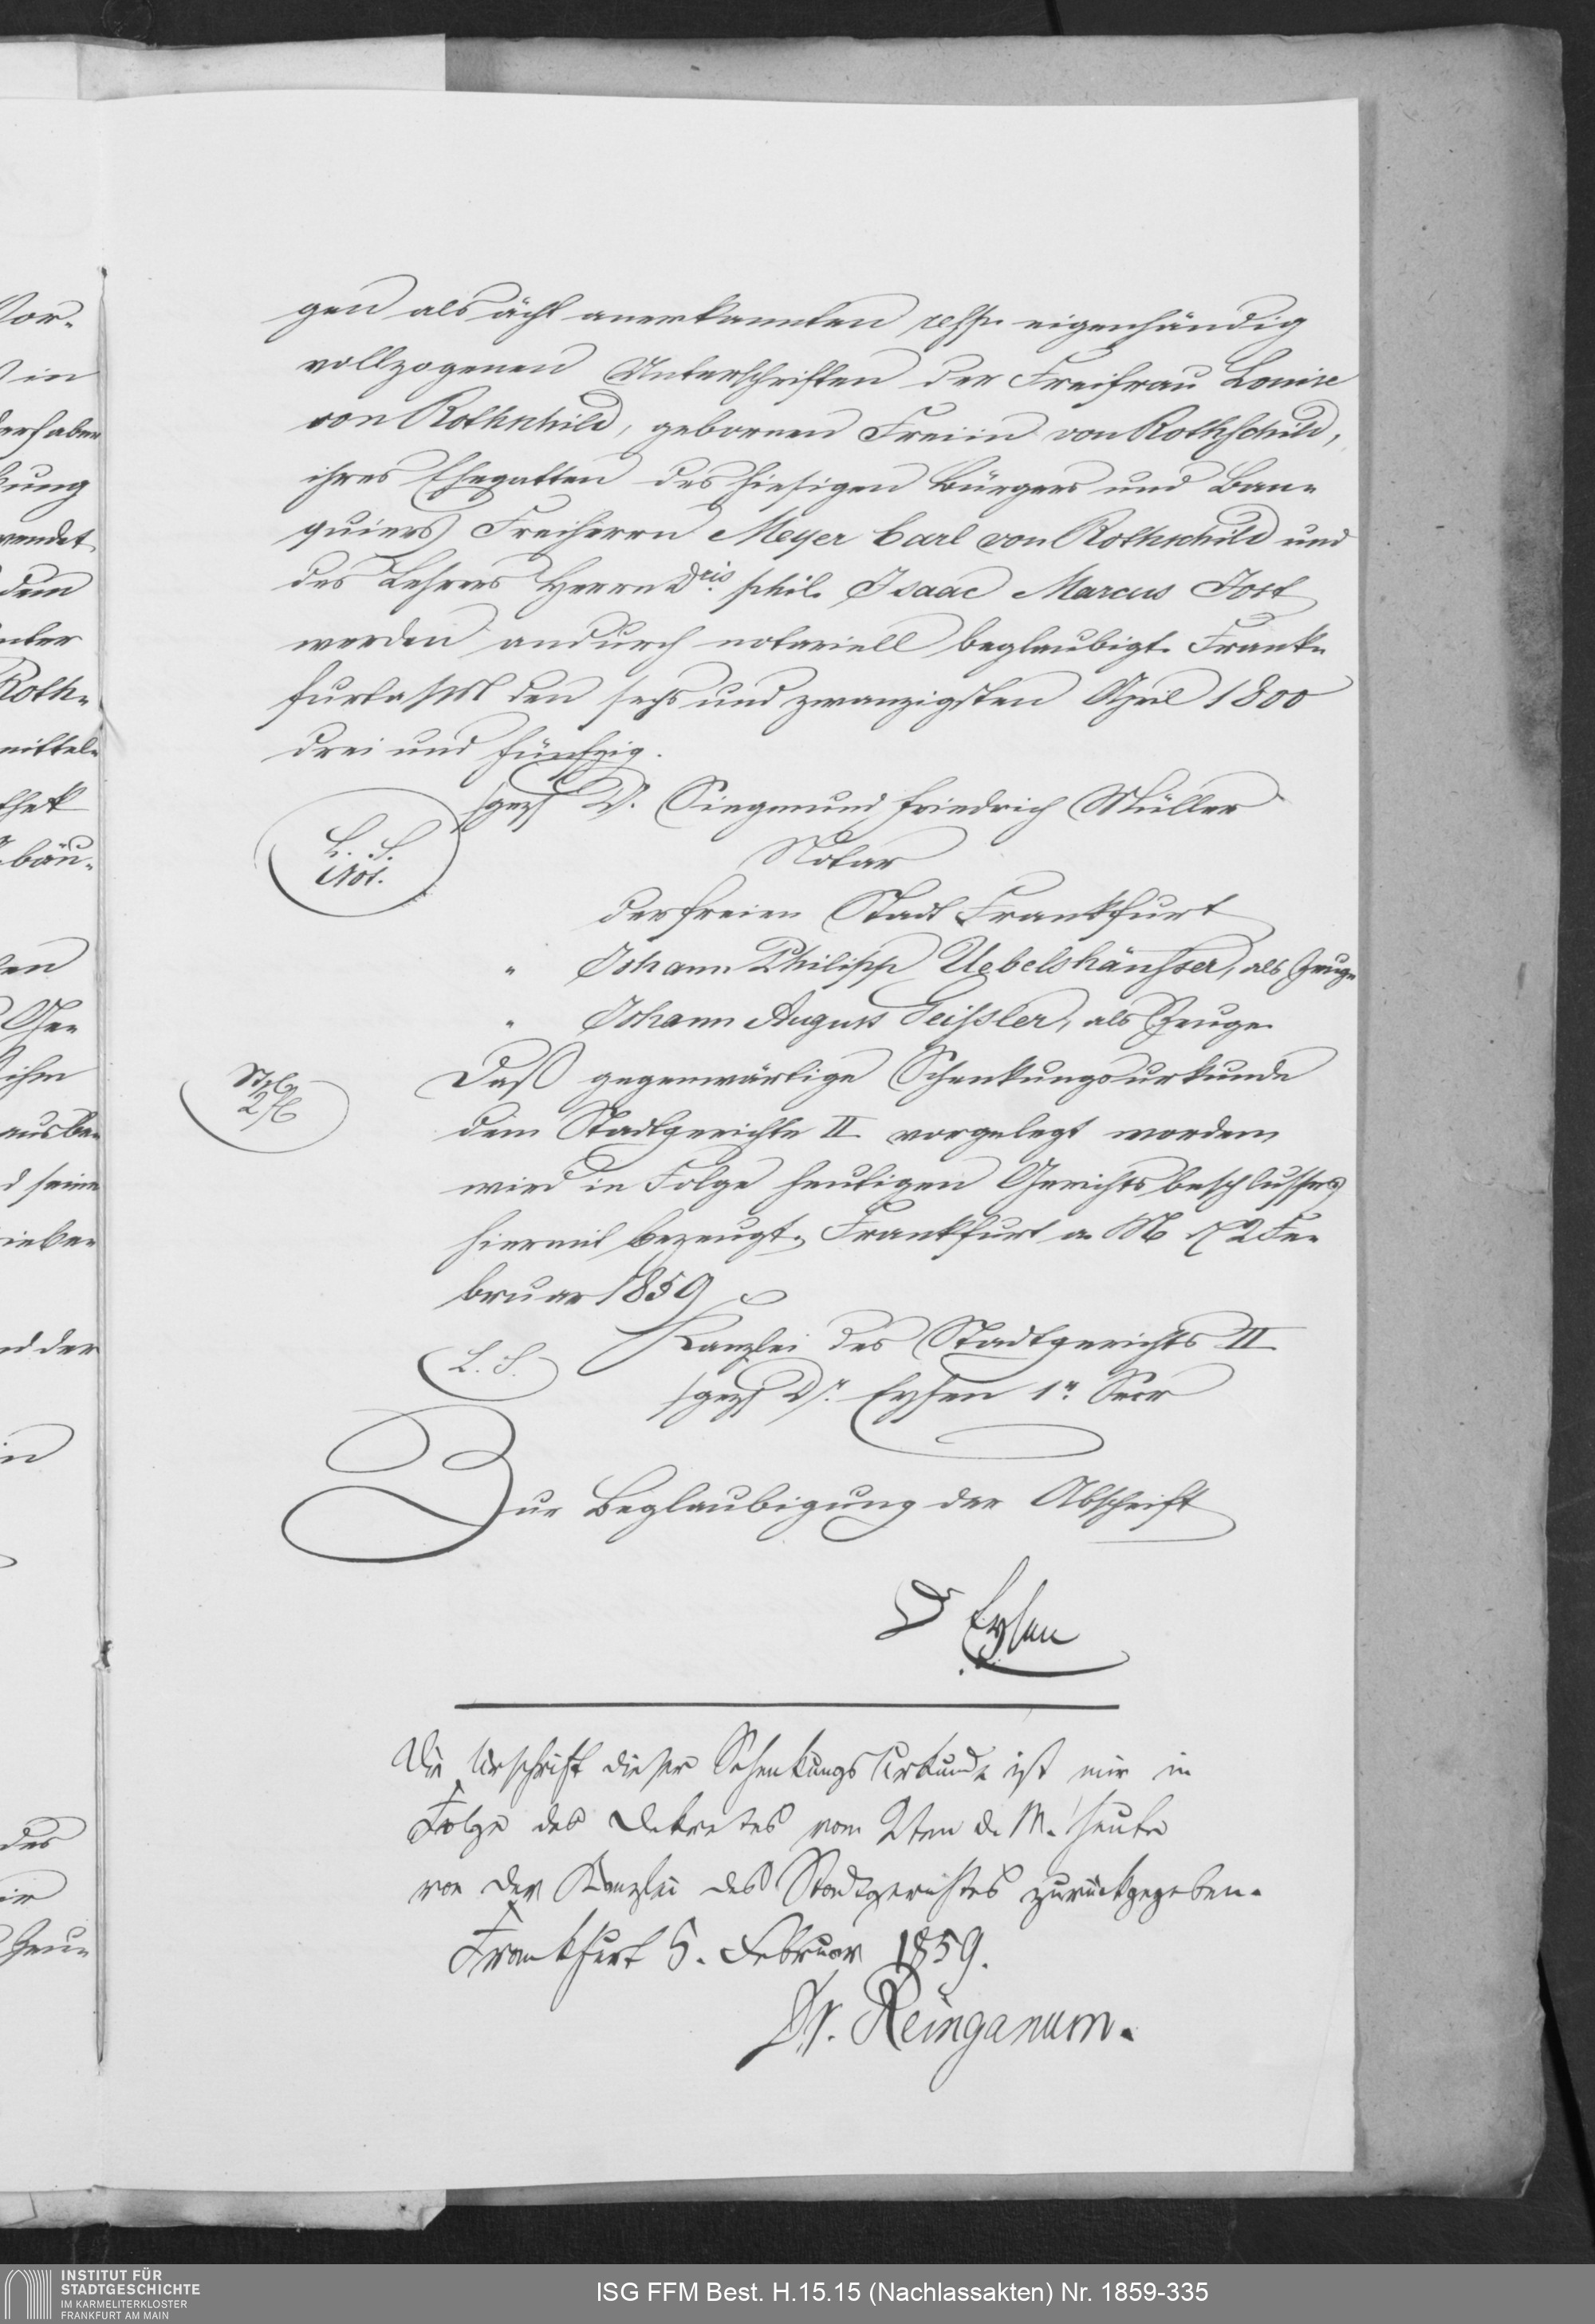 gen als ächt anerkannten resp. eigenhändig
vollzogenen Unterschriften der Freifrau Louise
von Rothschild, gebornen Freiin von Rothschild,
ihres Ehegatten des hiesigen Bürgers und Ban-
quiers Freiherrn Meyer Carl von Rothschild und
des Lehrers Herrn Dris. phil. Isaac Marcus Jost
werden andurch notariell beglaubigt. Frank-
furt a/M den sechs und zwanzigsten April 1800
drei und fünfzig.
/gez/ Dr. Siegmund Friedrich Müller
L. S.
Not.
Notar
der freien Stadt Frankfurt
" Johann Philipp Uebelshäuser, als Zeuge
" Johann August Geißler, als Zeuge.
Daß gegenwärtige Schenkungsurkunde
dem Stadtgerichte II vorgelegt worden,
wird in Folge heutigen Gerichtsbeschlusses
hiermit bezeugt. Frankfurt a. M. d. 2 Fe-
bruar 1859
Kanzlei des Stadtgerichts II
L. S.
/gez/ Dr. Eysen 1r. Secr
Zur Beglaubigung der Abschrift
Dr Eysen
Die Urschrift dieser Schenkungs Urkunde ist mir in
Folge des Dekretes vom 2ten d. M. heute
von der Kanzlei des Stadtgerichtes zurückgegeben.
Frankfurt 5. Februar 1859.
Dr. Reinganum.
Vor-
in
kung
wendet
dem
unter
Roth-
mittel-
thek
bäu-
Ge-
ihm
d seine
nd der
des
Zeu-
INSTITUT FÜR
STADTGESCHICHTE
IM KARMELITERKLOSTER
FRANKFURT AM MAIN
ISG FFM Best. H.15.15 (Nachlassakten) Nr. 1859-335